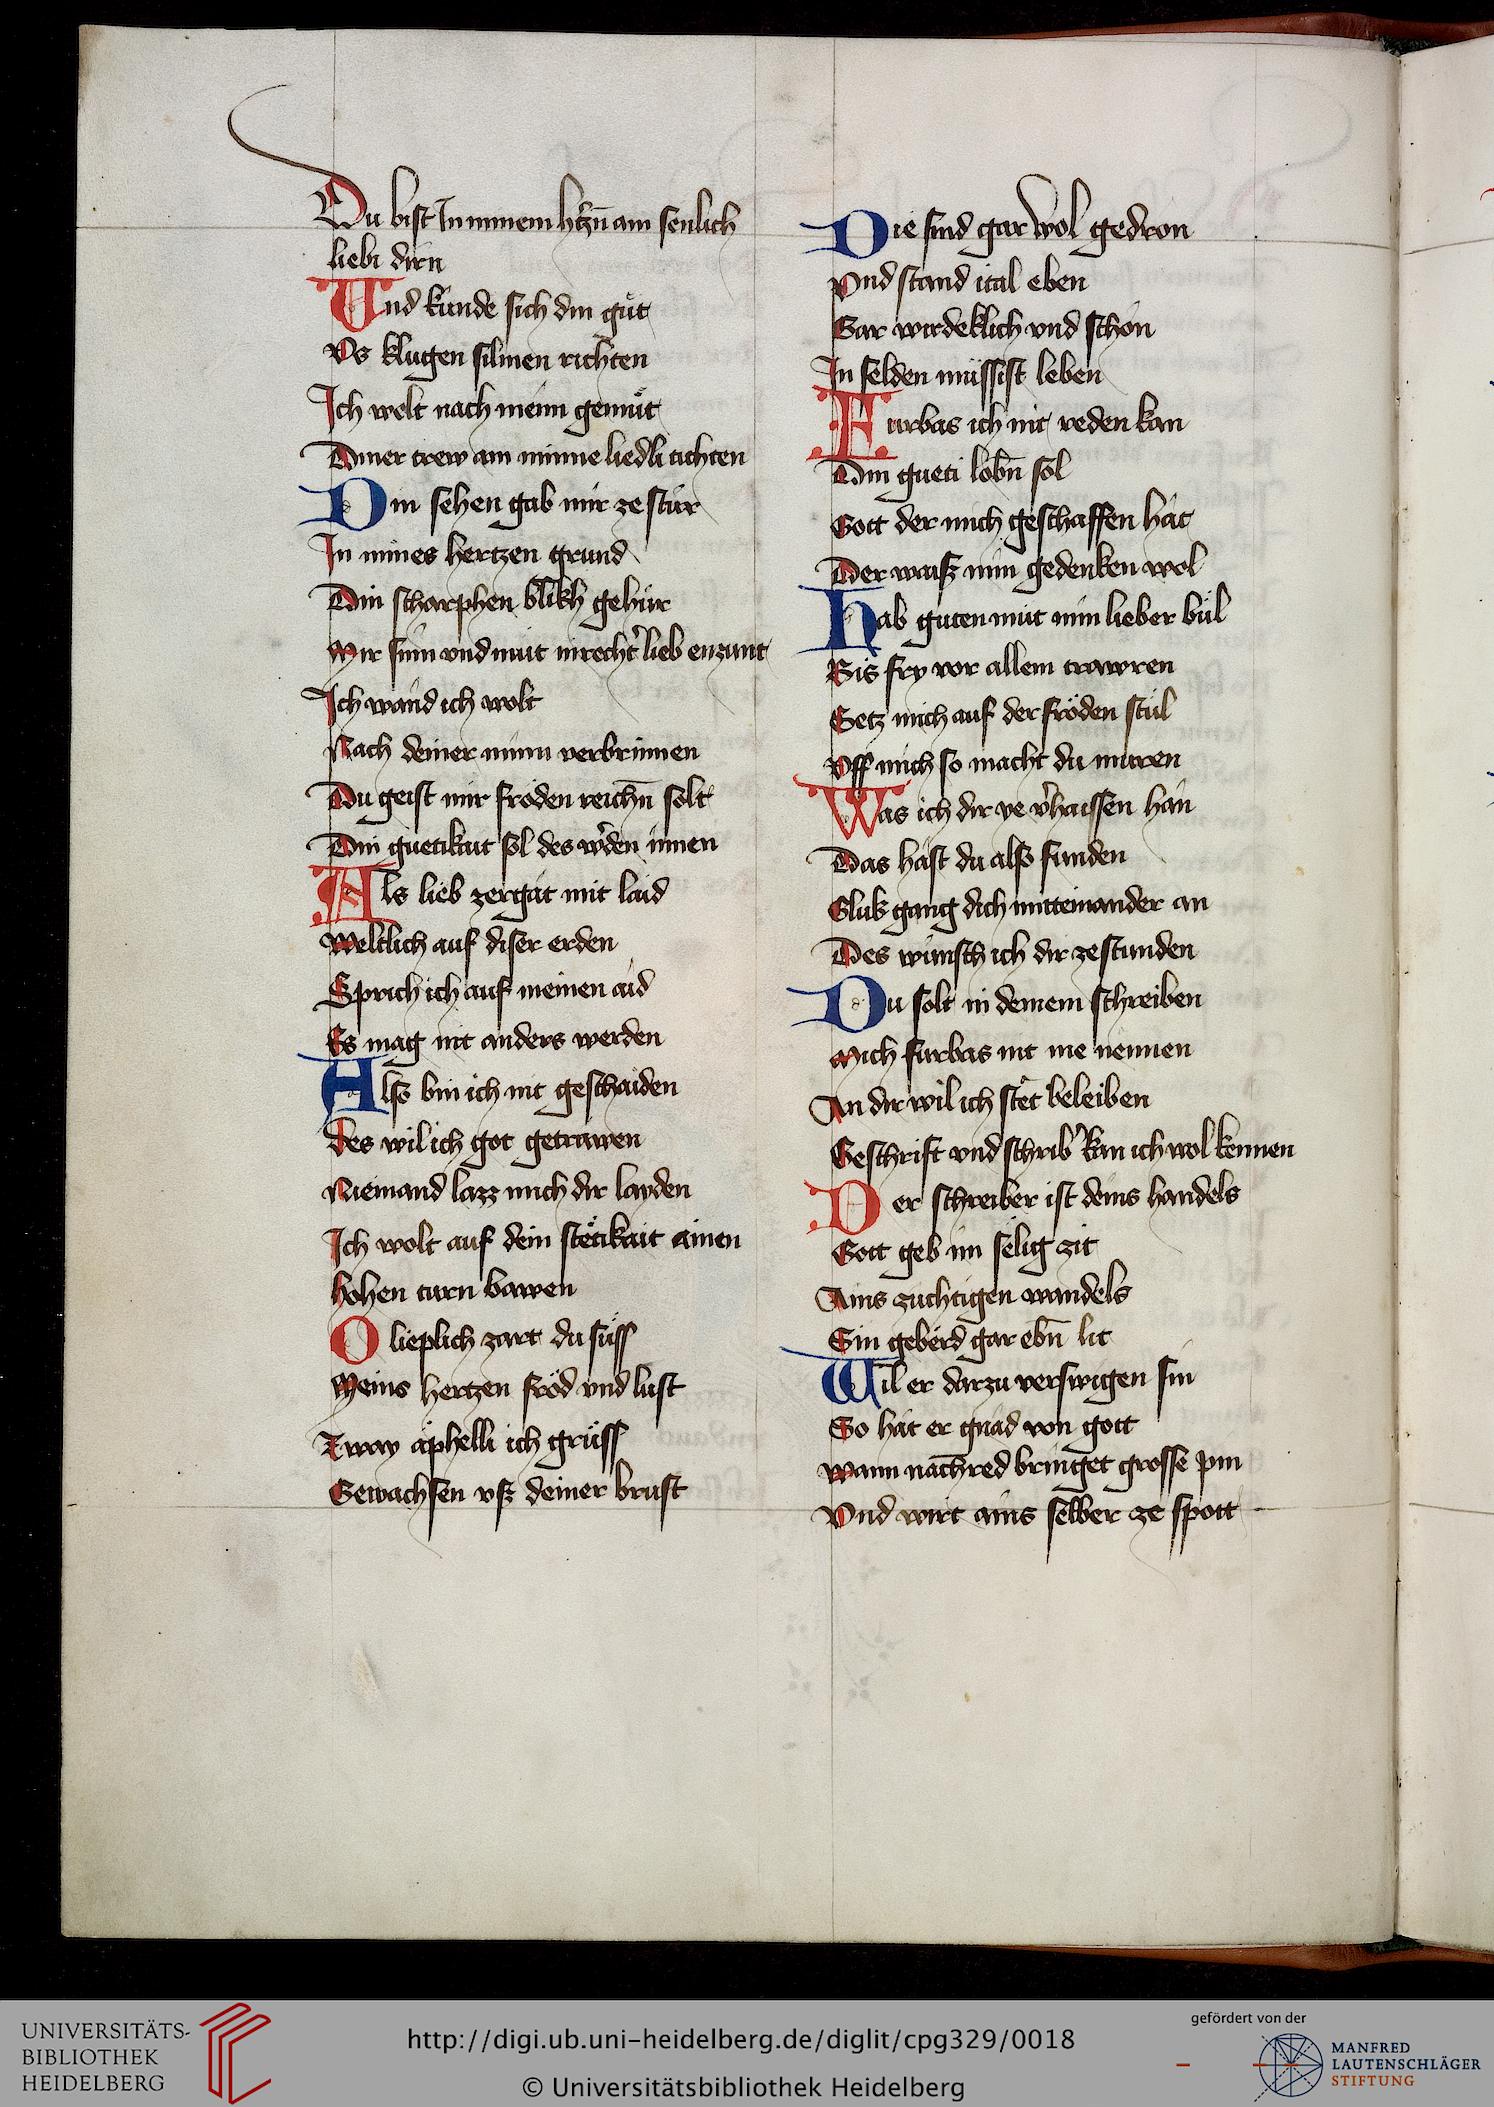 Du bist In minem h'tzn̄ ain senlich
liebi dirn
Und kunde sich din guͤt
Vs klugen silmen richten
Ich welt nach meim gemuͤt
Diner trew ain minne liedli tichten
Din sehen gab mir ze stúr
In mines hertzen grund
Din scharphen blikh gehúr
Mir sinn vnd mút in recht' lieb enzunt
Ich wánd ich wolt
Nach deiner minn verbrinnen
Du geist mir froͤden reichn̄ solt
Din guetikait sol des w'den innen
Als lieb zergat mit laid
Weltlich auf diser erden
Sprich ich auf meinen aid
Es mag nit anders werden
Also bin ich nit geschaiden
Des wil ich got getrúwen
Niemand lazz mich dir layden
Ich wolt auf dein staͤtikait ainen
hohen turn bawen
O lieplich zart du súss
Meins hertzen froͤd vnd lust
Zway aͤphelli ich gruͤss
Gewachsen vsz deiner brust
Die sind gar wol gedron
Vnd stand ital eben
Gar wirdeklich vnd schon
In selden mússist leben
Furbas ich nit reden kan
Din gueti lobn̄ sol
Gott der mich geschaffen hát
Der waisz min gedenken wol
Hab guten mút min lieber búl
Bis fry vor allem trawren
Setz mich auf der froͤden stúl
Vff mich so macht du muren
Was ich dir ye v'haissen hán
Das hást du also funden
Gluk gang dich mitteinander an
Des wúnsch ich dir ze stunden
Du solt in deinem schreiben
Mich furbas nit me nennen
An dir wil ich stet beleiben
Geschrift vnd schrib' kan ich wol kennen
Der schreiber ist deins handels
Gott geb im selig zit
Ains zuchtigen wandels
Sin geberd gar ebn̄ lit
Wil er darzu verswigen sin
So hát er gnad von gott
Wann nachred bringet grosse pin
Vnd wirt ains selber ze spott
UNIVERSITÄTS-
BIBLIOTHEK
HEIDELBERG
http://digi.ub.uni-heidelberg.de/diglit/cpg329/0018
© Universitätsbibliothek Heidelberg
gefördert von der
MANFRED
LAUTENSCHLÄGER
STIFTUNG